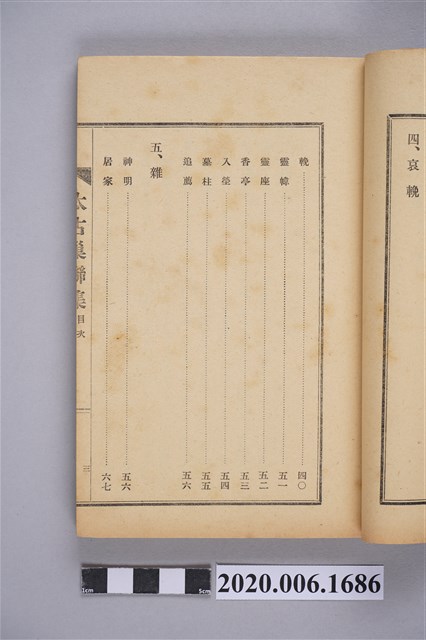 四、哀輓
輓 四〇
靈幃 五一
靈座 五二
香亭 五三
入塋 五四
墓柱 五五
追薦 五六
五、雜
神明 五六
居家 六七
太古巢聯集 目次 三
1cm 5cm
2020.006.1686